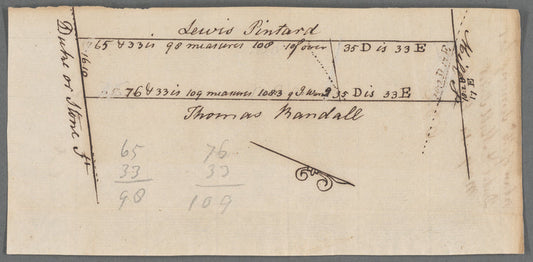 Lewis Pintard
65 & 33 is 98 measures 108 10 f over 35 D is 33 E
76 & 33 is 109 measures 108 3 35 D is 33 E
Thomas Randall
Duke or Stone St
65
33
98
76
33
109